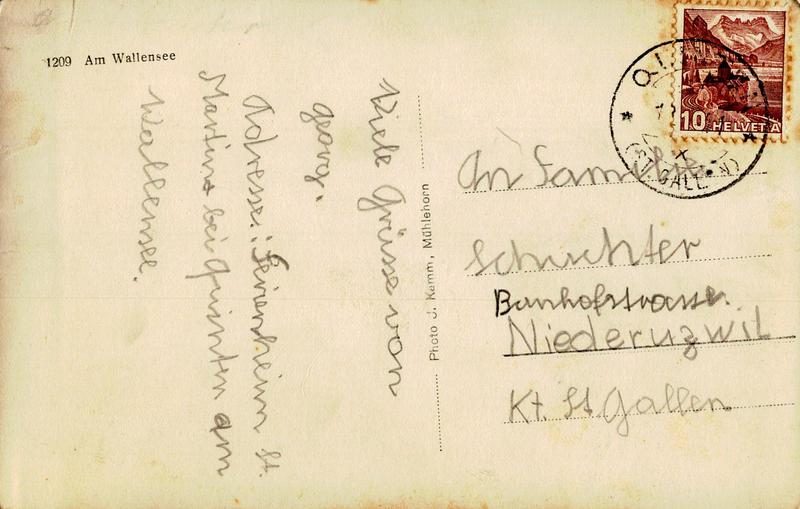 1209 Am Wallensee
Viele Grüsse von
georg.
Adresse: Ferienheim St.
Martins bei Quinten am
Wallensee.
Photo J. Kamm, Mühlehorn
10 HELVETIA
(ST. GALLEN)
An Familie
Schuchter
Banhofstrasse.
Niederuzwil
Kt. St. Gallen